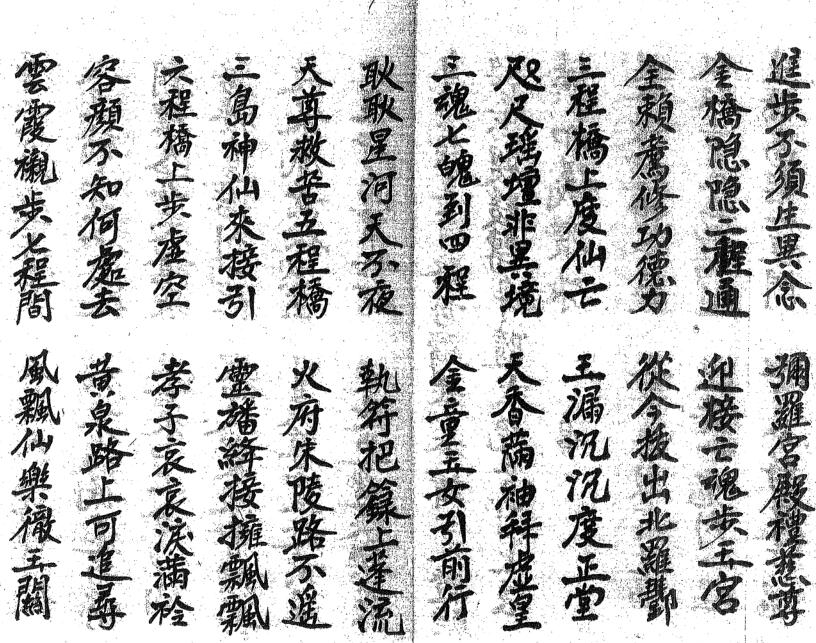 進步不須生異念　彌羅宮殿禮慈尊
金橋隐隐二程通　迎接亡魂步玉宮
全賴薦修功德力　從今拔出北羅酆
三程橋上度仙亡　玉漏沉沉度正堂
咫尺瑶壇非異境　天香滿袖拜虚皇
三魂七魄到四程　金童玉女引前行
耿耿星河天不夜　執符把籙上蓬流
天尊救苦五程橋　火府朱陵路不遥
三島神仙來接引　靈旛絳接擁飄飄
六程橋上步虚空　孝子哀哀淚滿衿
容顔不知何處去　黄泉路上可追尋
雲霞襯步七程間　風飄仙樂徹玉關